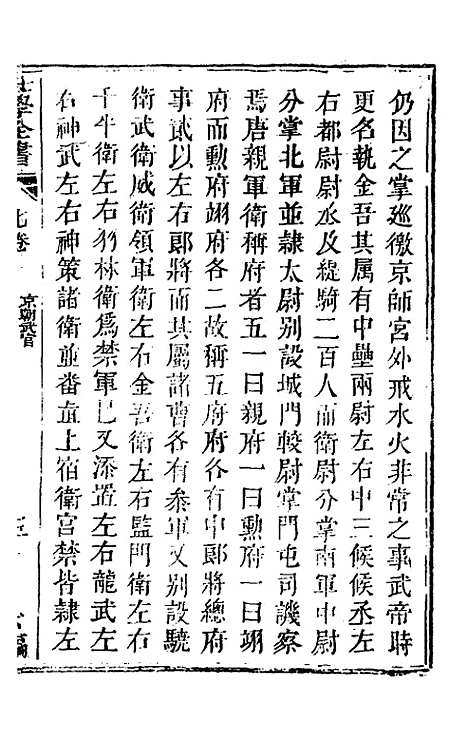 仍因之掌廵徼京師宮外戒水火非常之事武帝時
更名執金吾其属有中壘兩尉左右中三候候丞左
右都尉尉丞及緹騎二百人而衛尉分掌南軍中尉
分掌北軍並隷太尉別設城門較尉掌門屯司譏察
焉唐親軍衛稱府者五一曰親府一曰勲府一曰翊
府而勲府翊府各二故稱五府府各有中郎將緫府
事貳以左右郎將而其屬諸曹各有叅軍又別設驍
衛武衛威衛領軍衛左右金吾衛左右監門衛左右
千牛衛左右羽林衛爲禁軍已又添置左右龍武左
右神武左右神策諸衛並番直上宿衛宮禁皆隷左
學全書
卷
京朝武官